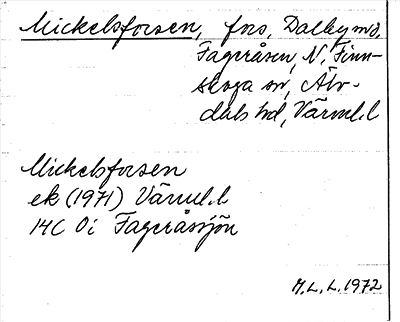 Mickelsforsen, fors, Dalby m fl,
Fageråsen, N, Finn-
skoga sn, Älv-
dals hd, Värml. l
Mickelsforsen
ek (1971) Värml. l
14C 0i Fageråssjön
M.L.L. 1972